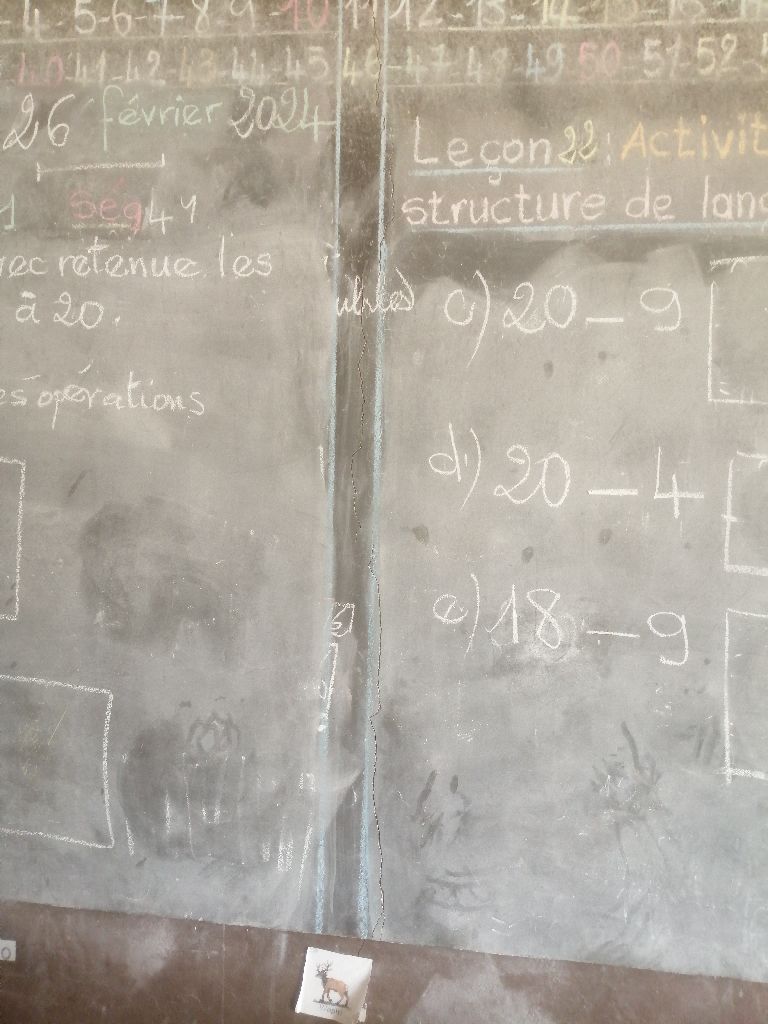 4-5-6-7-8-9-10-11-12-13-14
40-41-42-43-44-45-46-47-48-49-50-51-52-5
26 février 2024
1 Ség 4
rec retenue les
à 20.
es opérations
Leçon 22 : Activit
structure de lang
c) 20 - 9
d) 20 - 4
e) 18 - 9